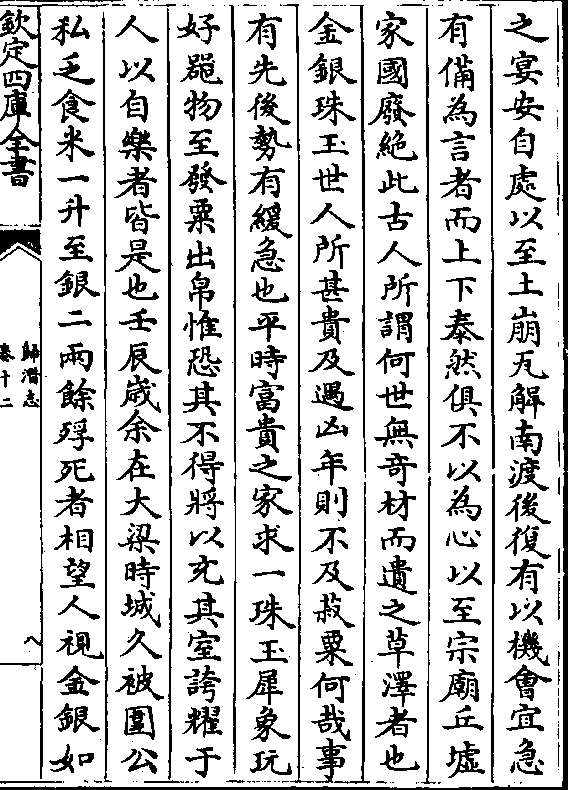 之宴安自處以至土崩瓦解南渡後復有以機會宜急
有備為言者而上下泰然俱不以為心以至宗廟丘墟
家國廢絶此古人所謂何世無奇材而遺之草澤者也
金銀珠玉世人所甚貴及遇凶年則不及菽粟何哉事
有先後勢有緩急也平時富貴之家求一珠玉犀象玩
好器物至發粟出帛惟恐其不得將以充其室誇耀于
人以自樂者皆是也壬辰歲余在大梁時城久被圍公
私乏食米一升至銀二兩餘殍死者相望人視金銀如
欽定四庫全書
歸潛志
卷十二
八